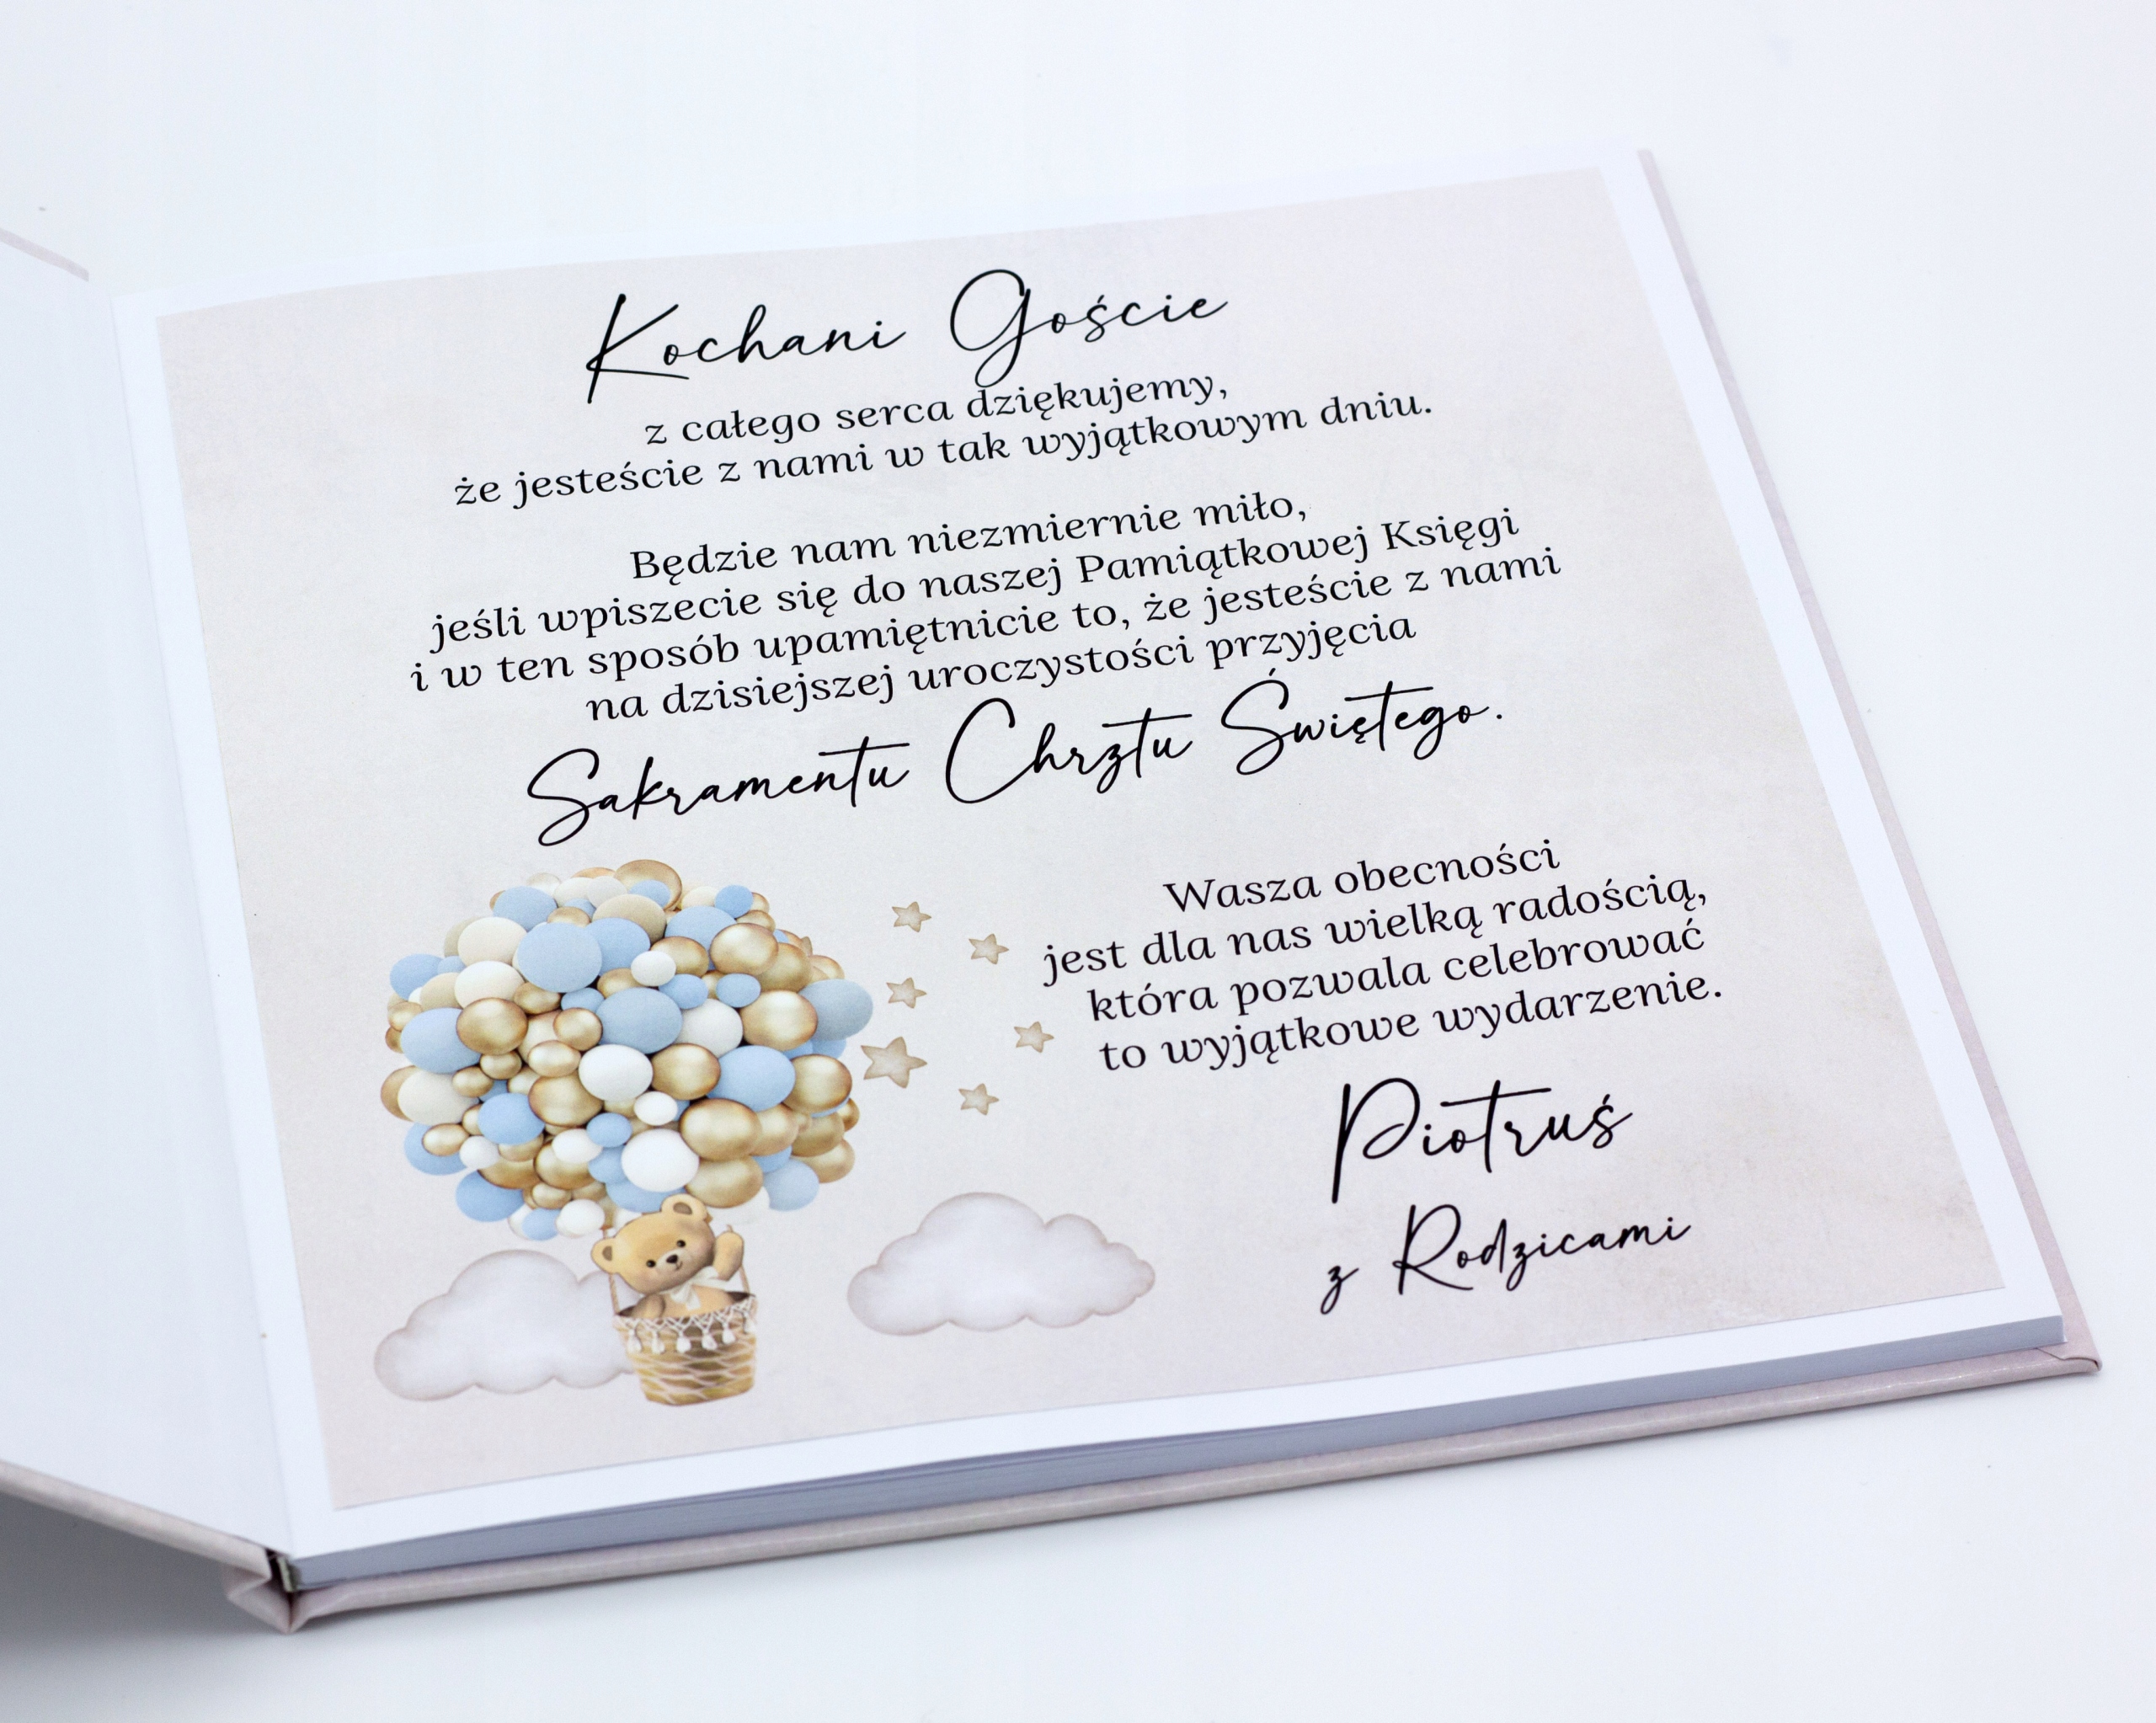 Kochani Goście
z całego serca dziękujemy,
że jesteście z nami w tak wyjątkowym dniu.
Będzie nam niezmiernie miło,
jeśli wpiszecie się do naszej Pamiątkowej Księgi
i w ten sposób upamiętnicie to, że jesteście z nami
na dzisiejszej uroczystości przyjęcia
Sakramentu Chrztu Świętego.
Wasza obecności
jest dla nas wielką radością,
która pozwala celebrować
to wyjątkowe wydarzenie.
Piotruś
z Rodzicami